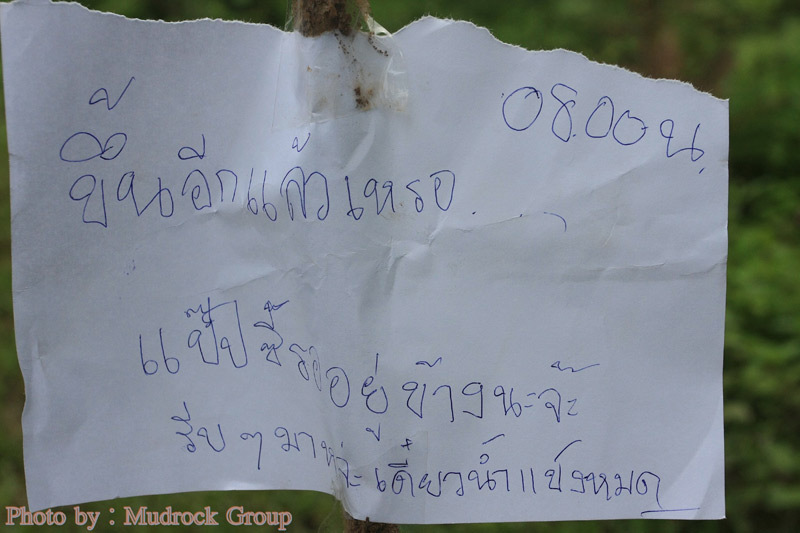 08.00 น.
ขึ้นอีกแล้วเหรอ...
แป๊ปซี่รออยู่ข้างนะจ๊ะ
รีบๆมาหล่ะ เดี๋ยวน้ำแข็งหมด
Photo by : Mudrock Group